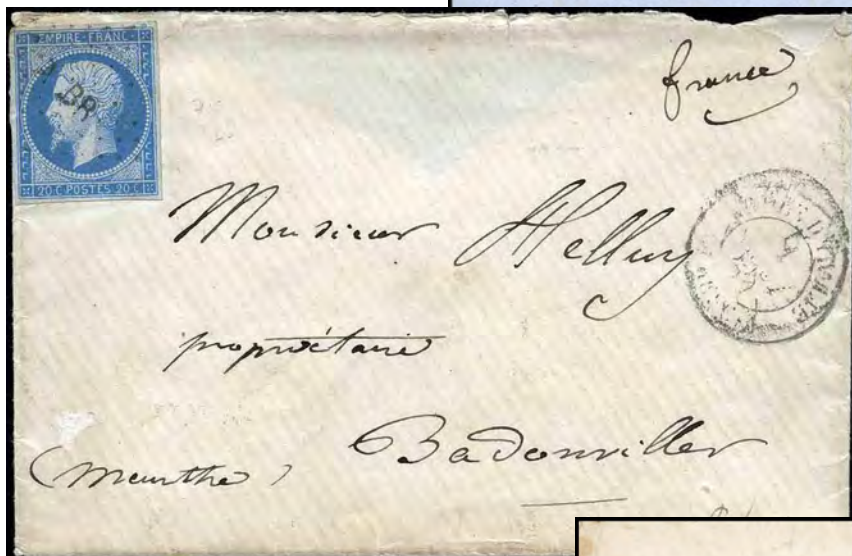 EMPIRE FRANC
BB
20 C POSTES 20 C
france
Monsieur Helluy
propriétaire
Badonviller
(Meurthe)
ARMÉE D'ITALIE